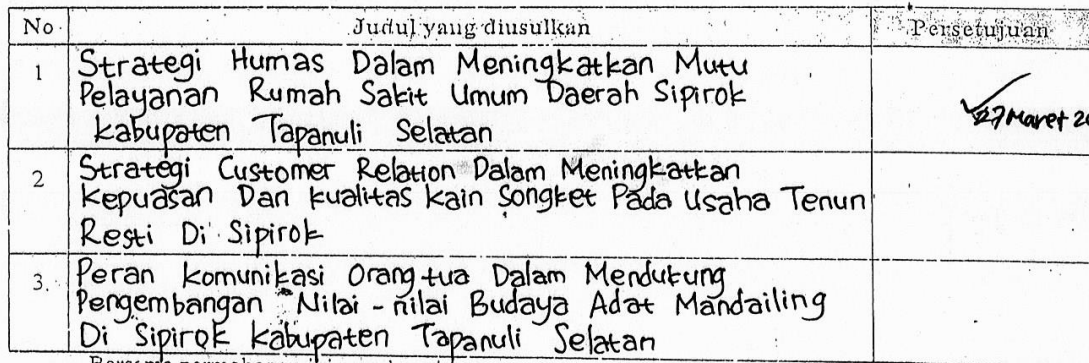 No Judul yang diusulkan Persetujuan
1 Strategi Humas Dalam Meningkatkan Mutu
Pelayanan Rumah Sakit Umum Daerah Sipirok
Kabupaten Tapanuli Selatan
27 Maret
2 Strategi Customer Relation Dalam Meningkatkan
Kepuasan Dan kualitas kain Songket Pada Usaha Tenun
Resti Di Sipirok
3. Peran Komunikasi Orang tua Dalam Mendukung
Pengembangan Nilai - nilai Budaya Adat Mandailing
Di Sipirok Kabupaten Tapanuli Selatan